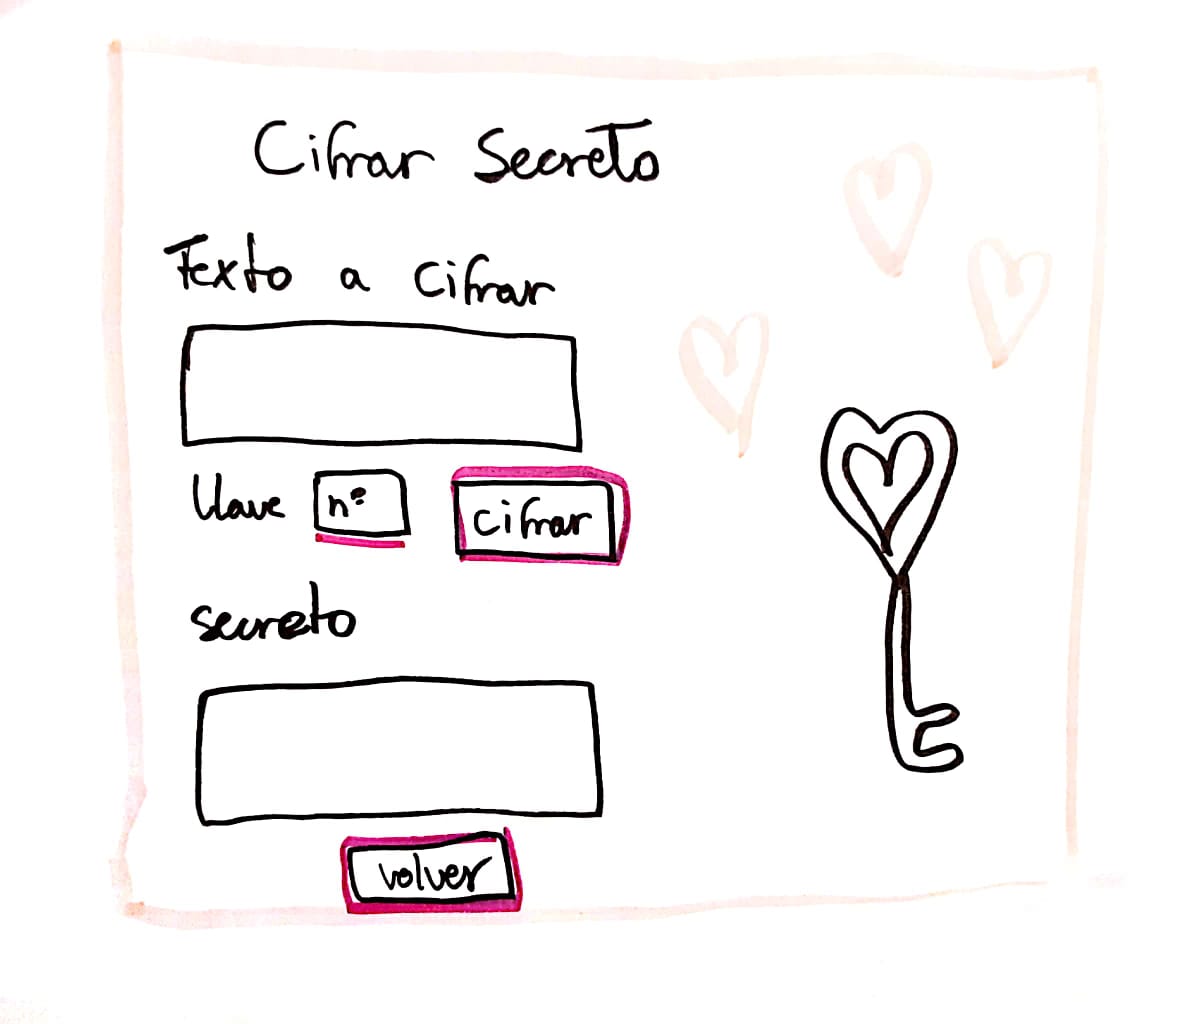 Cifrar Secreto
Texto a Cifrar
Llave nº cifrar
secreto
volver